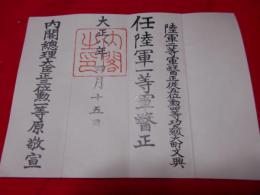 陸軍二等軍医正従五位勲四等功四級大町文興
任陸軍一等軍醫正
大正
年
月十五日
内閣之印
内閣總理大臣正三位勲一等原敬宣